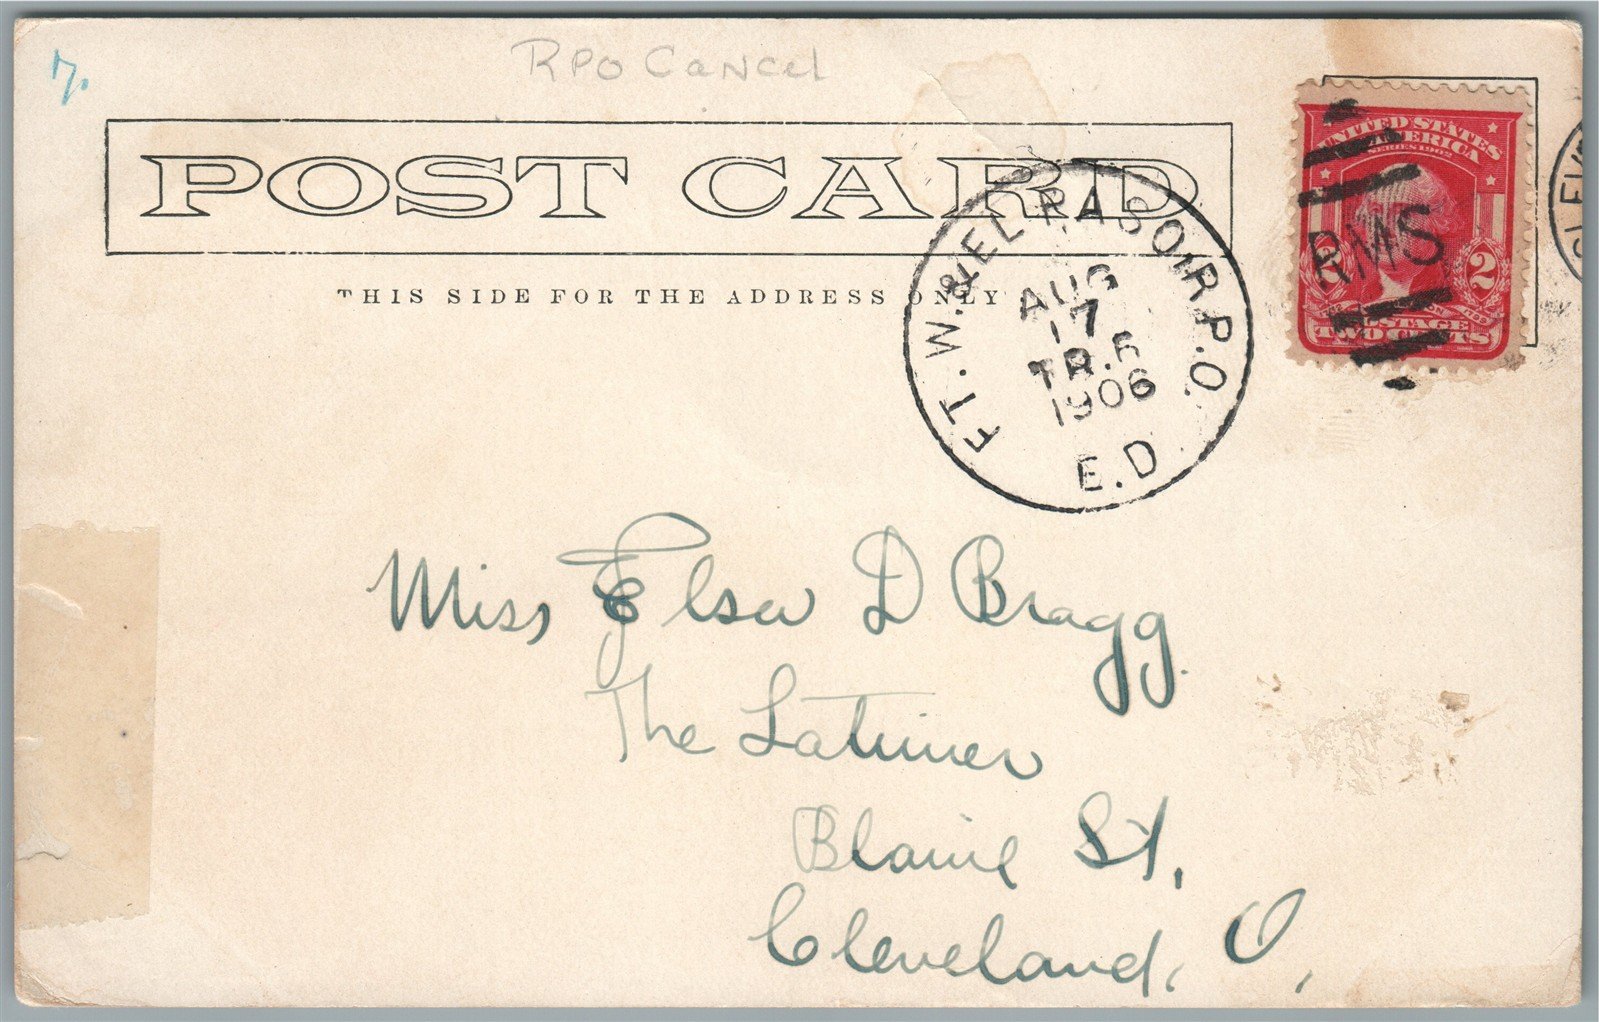 7.
RPO Cancel
POST CARD
THIS SIDE FOR THE ADDRESS ONLY
FT. W. & EL PASO, R.P.O.
AUG
17
TR. 5
1906
E.D
UNITED STATES
OF AMERICA
SERIES 1902
RMS
2 2
POSTAGE
TWO CENTS
Miss Elsa D Bragg.
The Latimer
Blaine St.
Cleveland, O.